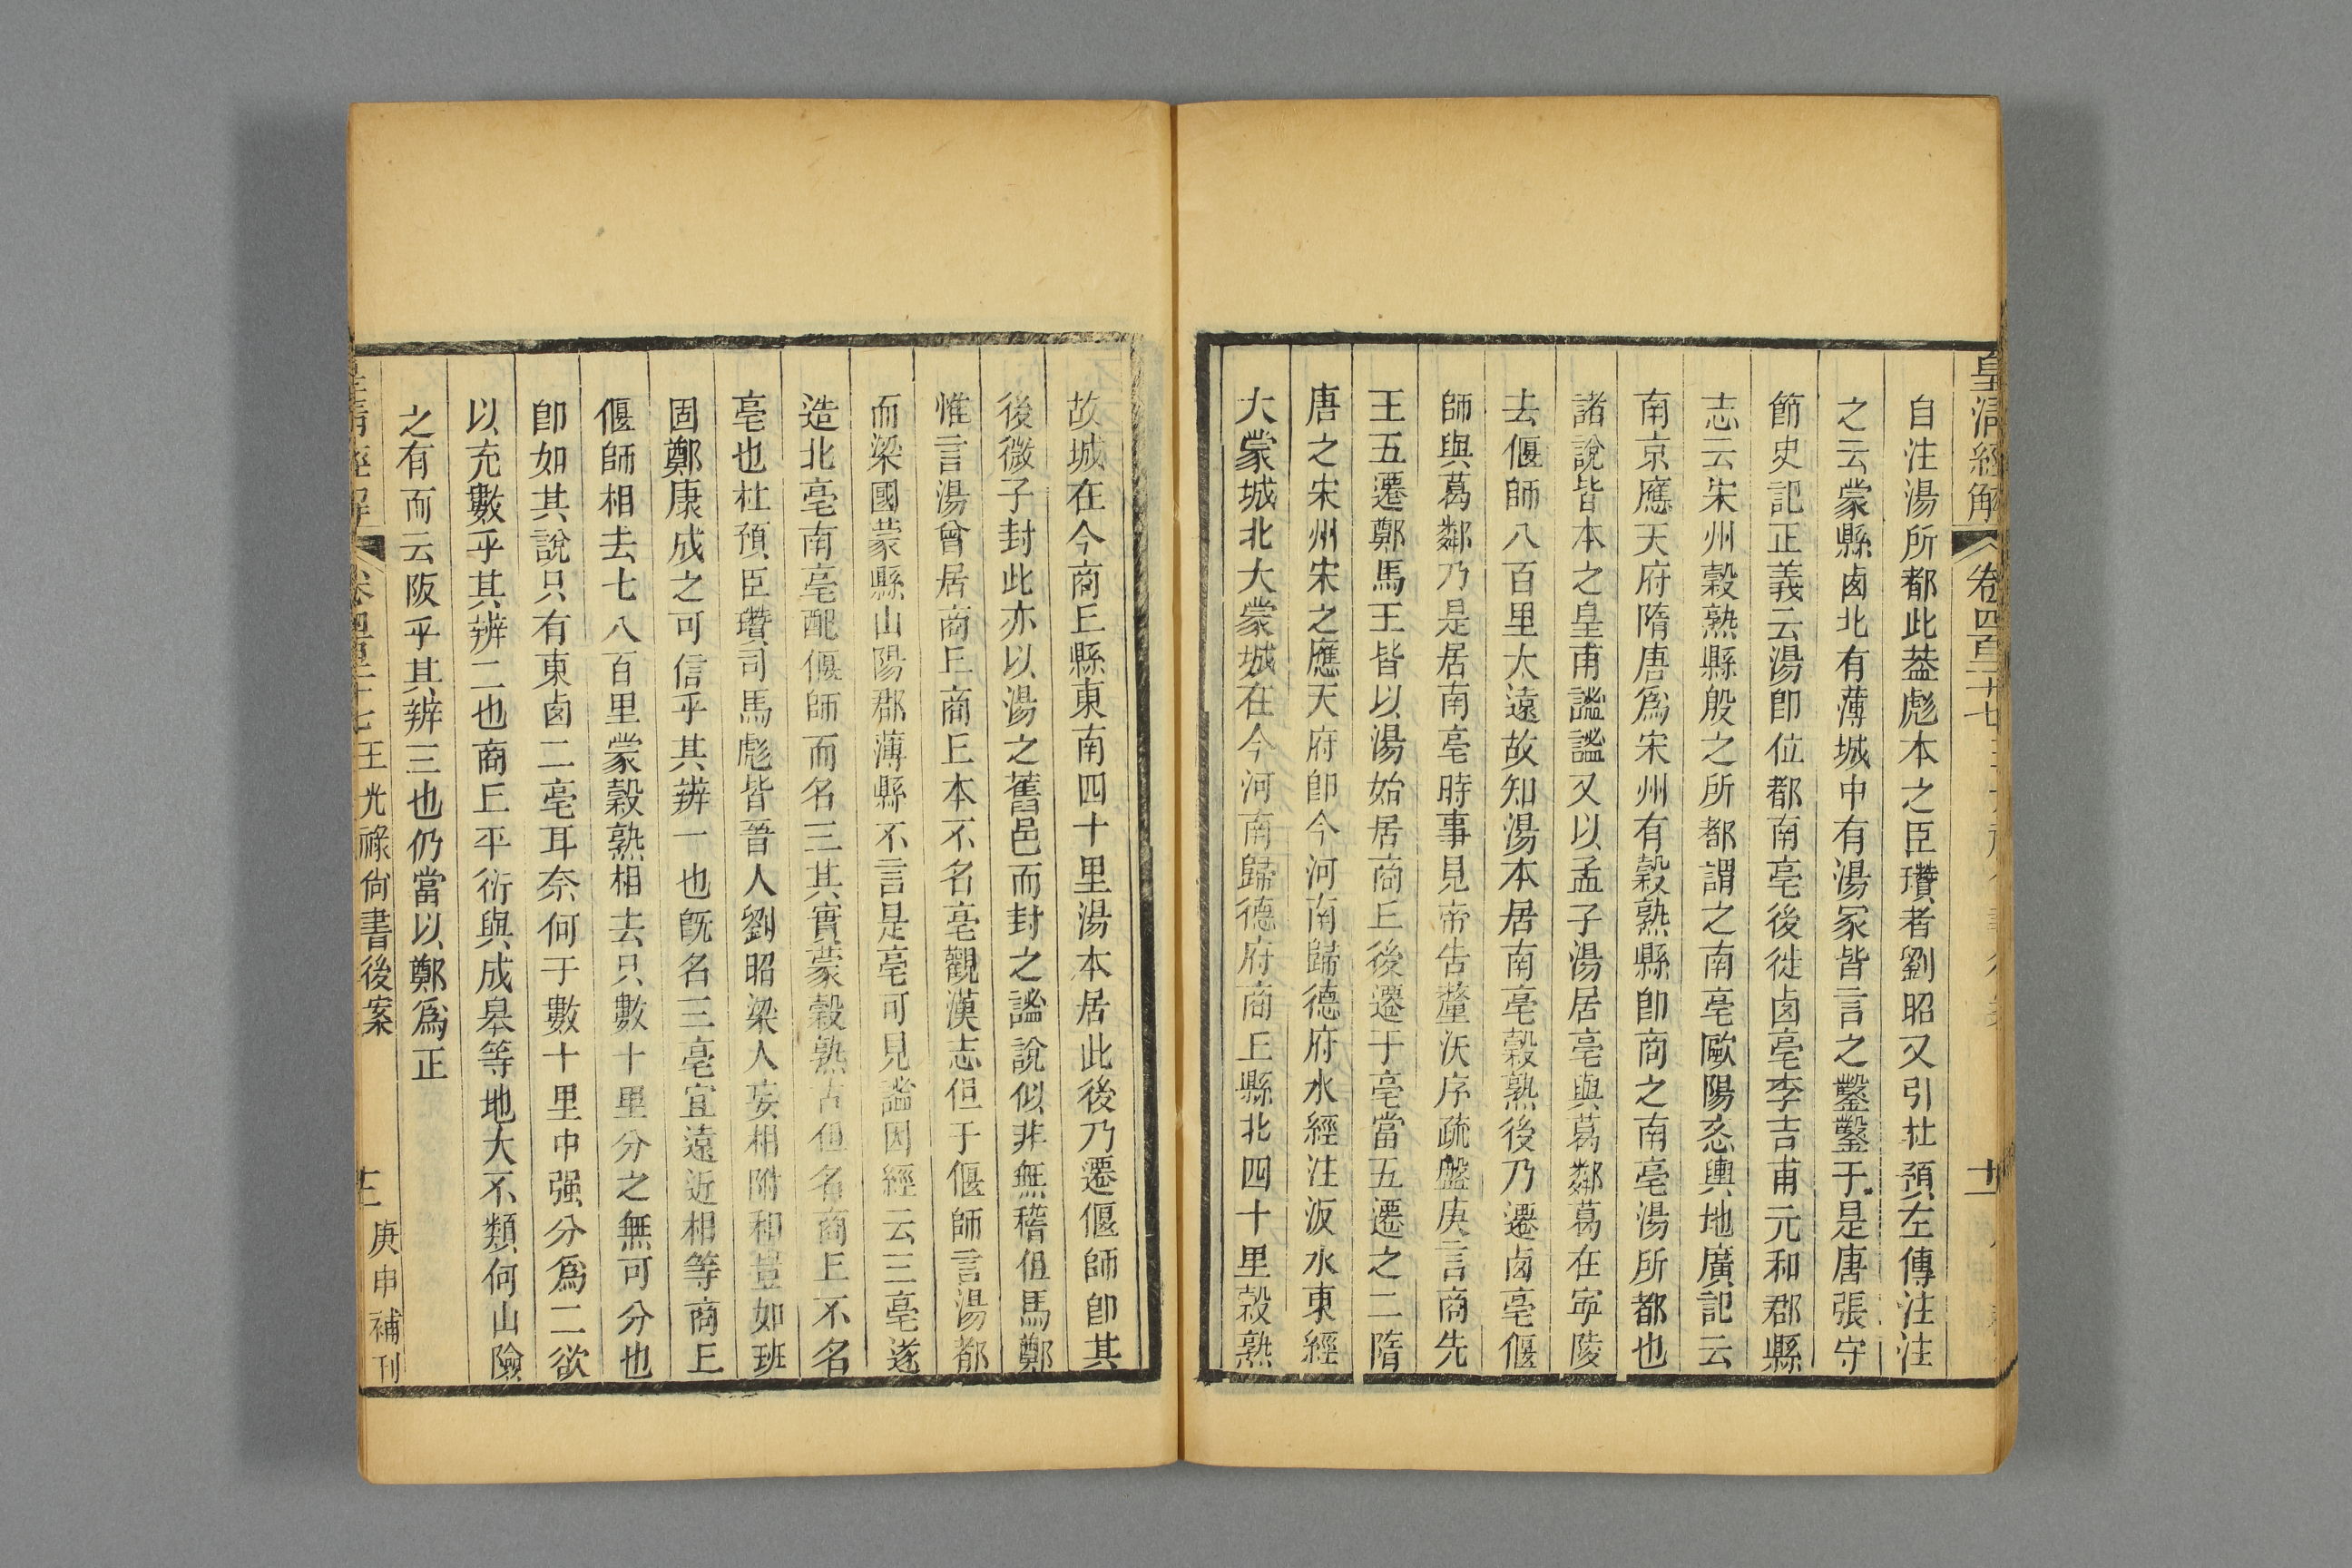 皇清經解 卷四百二十七
自注湯所都此葢彪本之臣瓚者劉昭又引杜預左傳注注
之云蒙縣卤北有薄城中有湯冢皆言之鑿鑿于是唐張守
節史記正義云湯卽位都南亳後徙卤亳李吉甫元和郡縣
志云宋州榖熟縣殷之所都謂之南亳歐陽忞輿地廣記云
南京應天府隋唐爲宋州有榖熟縣卽商之南亳湯所都也
諸說皆本之皇甫謐謐又以孟子湯居亳與葛鄰葛在寕陵
去偃師八百里太遠故知湯本居南亳榖熟後乃遷卤亳偃
師與葛鄰乃是居南亳時事見帝告釐沃序疏盤庚言商先
王五遷鄭馬王皆以湯始居商丘後遷于亳當五遷之二隋
唐之宋州宋之應天府卽今河南歸德府水經注汳水東經
大蒙城北大蒙城在今河南歸德府商丘縣北四十里榖熟
十一
故城在今商丘縣東南四十里湯本居此後乃遷偃師卽其
後微子封此亦以湯之舊邑而封之謐說似非無稽但馬鄭
惟言湯曾居商丘商丘本不名亳觀漢志但于偃師言湯都
而梁國蒙縣山陽郡薄縣不言是亳可見謐因經云三亳遂
造北亳南亳配偃師而名三其實蒙榖熟古但名商丘不名
亳也杜預臣瓚司馬彪皆晉人劉昭梁人妄相附和豈如班
固鄭康成之可信乎其辨一也旣名三亳宜遠近相等商丘
偃師相去七八百里蒙榖熟相去只數十里分之無可分也
卽如其說只有東卤二亳耳奈何于數十里中强分爲二欲
以充數乎其辨二也商丘平衍與成皋等地大不類何山險
之有而云阪乎其辨三也仍當以鄭爲正
皇清經解 卷四百二十七 王光祿尙書後案 十二 庚申補刊